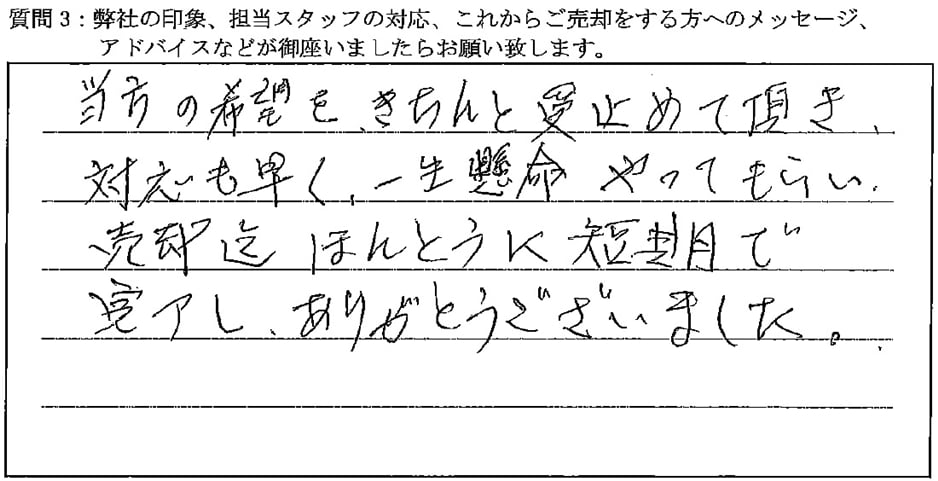 質問3：弊社の印象、担当スタッフの対応、これからご売却をする方へのメッセージ、
アドバイスなどが御座いましたらお願い致します。
当方の希望を、きちんと受止めて頂き、
対応も早く、一生懸命やってもらい、
売却迄ほんとうに短期で
完了し、ありがとうございました。